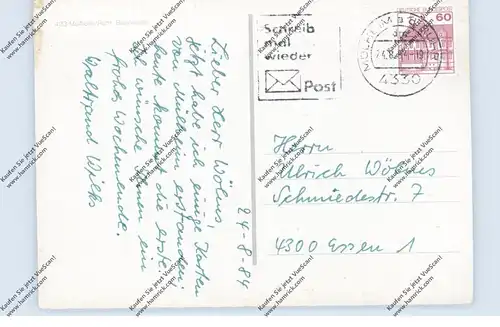 433 Mülheim/Ruhr
Schreib
mal
wieder
Post
MÜLHEIM A D RUHR
4330
DEUTSCHE BUNDESPOST
60
24-8-84
Lieber Herr Wölms,
jetzt habe ich einige Karten
von Mülheim erstanden
heute kommt die erste.
Ich wünsche Ihnen ein
frohes Wochenende.
Waltraud Wilks
Herrn
Ulrich Wölms
Schmiedestr. 7
4300 Essen 1
Kaufen Sie jetzt VueScan!
www.hamrick.com